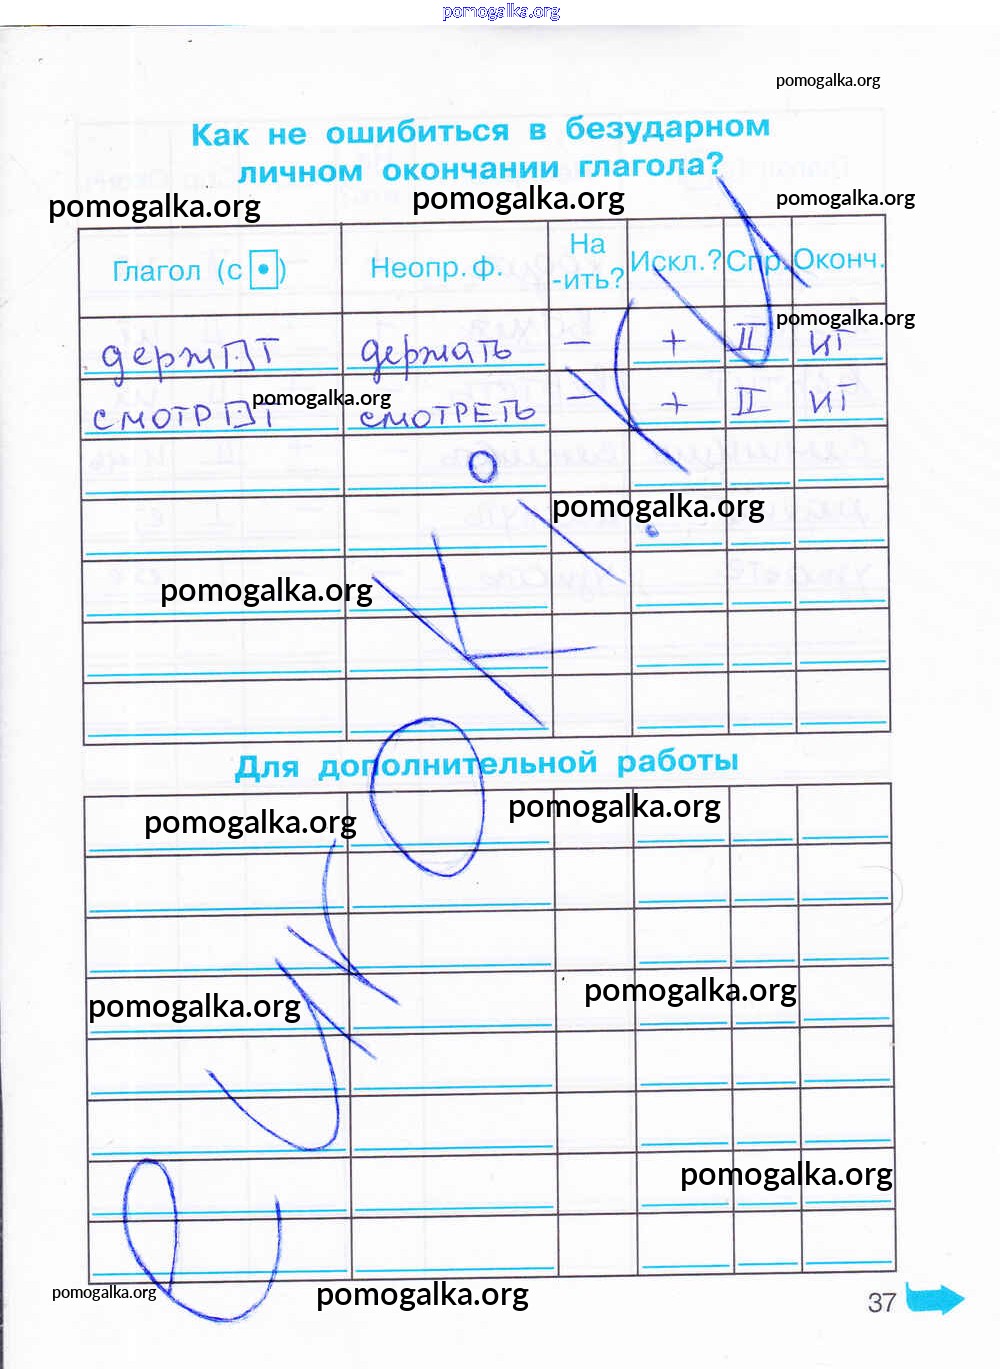 pomogalka.org
pomogalka.org
Как не ошибиться в безударном
личном окончании глагола?
pomogalka.org pomogalka.org pomogalka.org
Глагол (с •) Неопр. ф. На -ить? Искл.? Спр. Оконч.
pomogalka.org
держ□т держать − + II ит
pomogalka.org
смотр□т смотреть − + II ит
pomogalka.org
pomogalka.org
Для дополнительной работы
pomogalka.org pomogalka.org
pomogalka.org pomogalka.org
pomogalka.org
pomogalka.org pomogalka.org
37